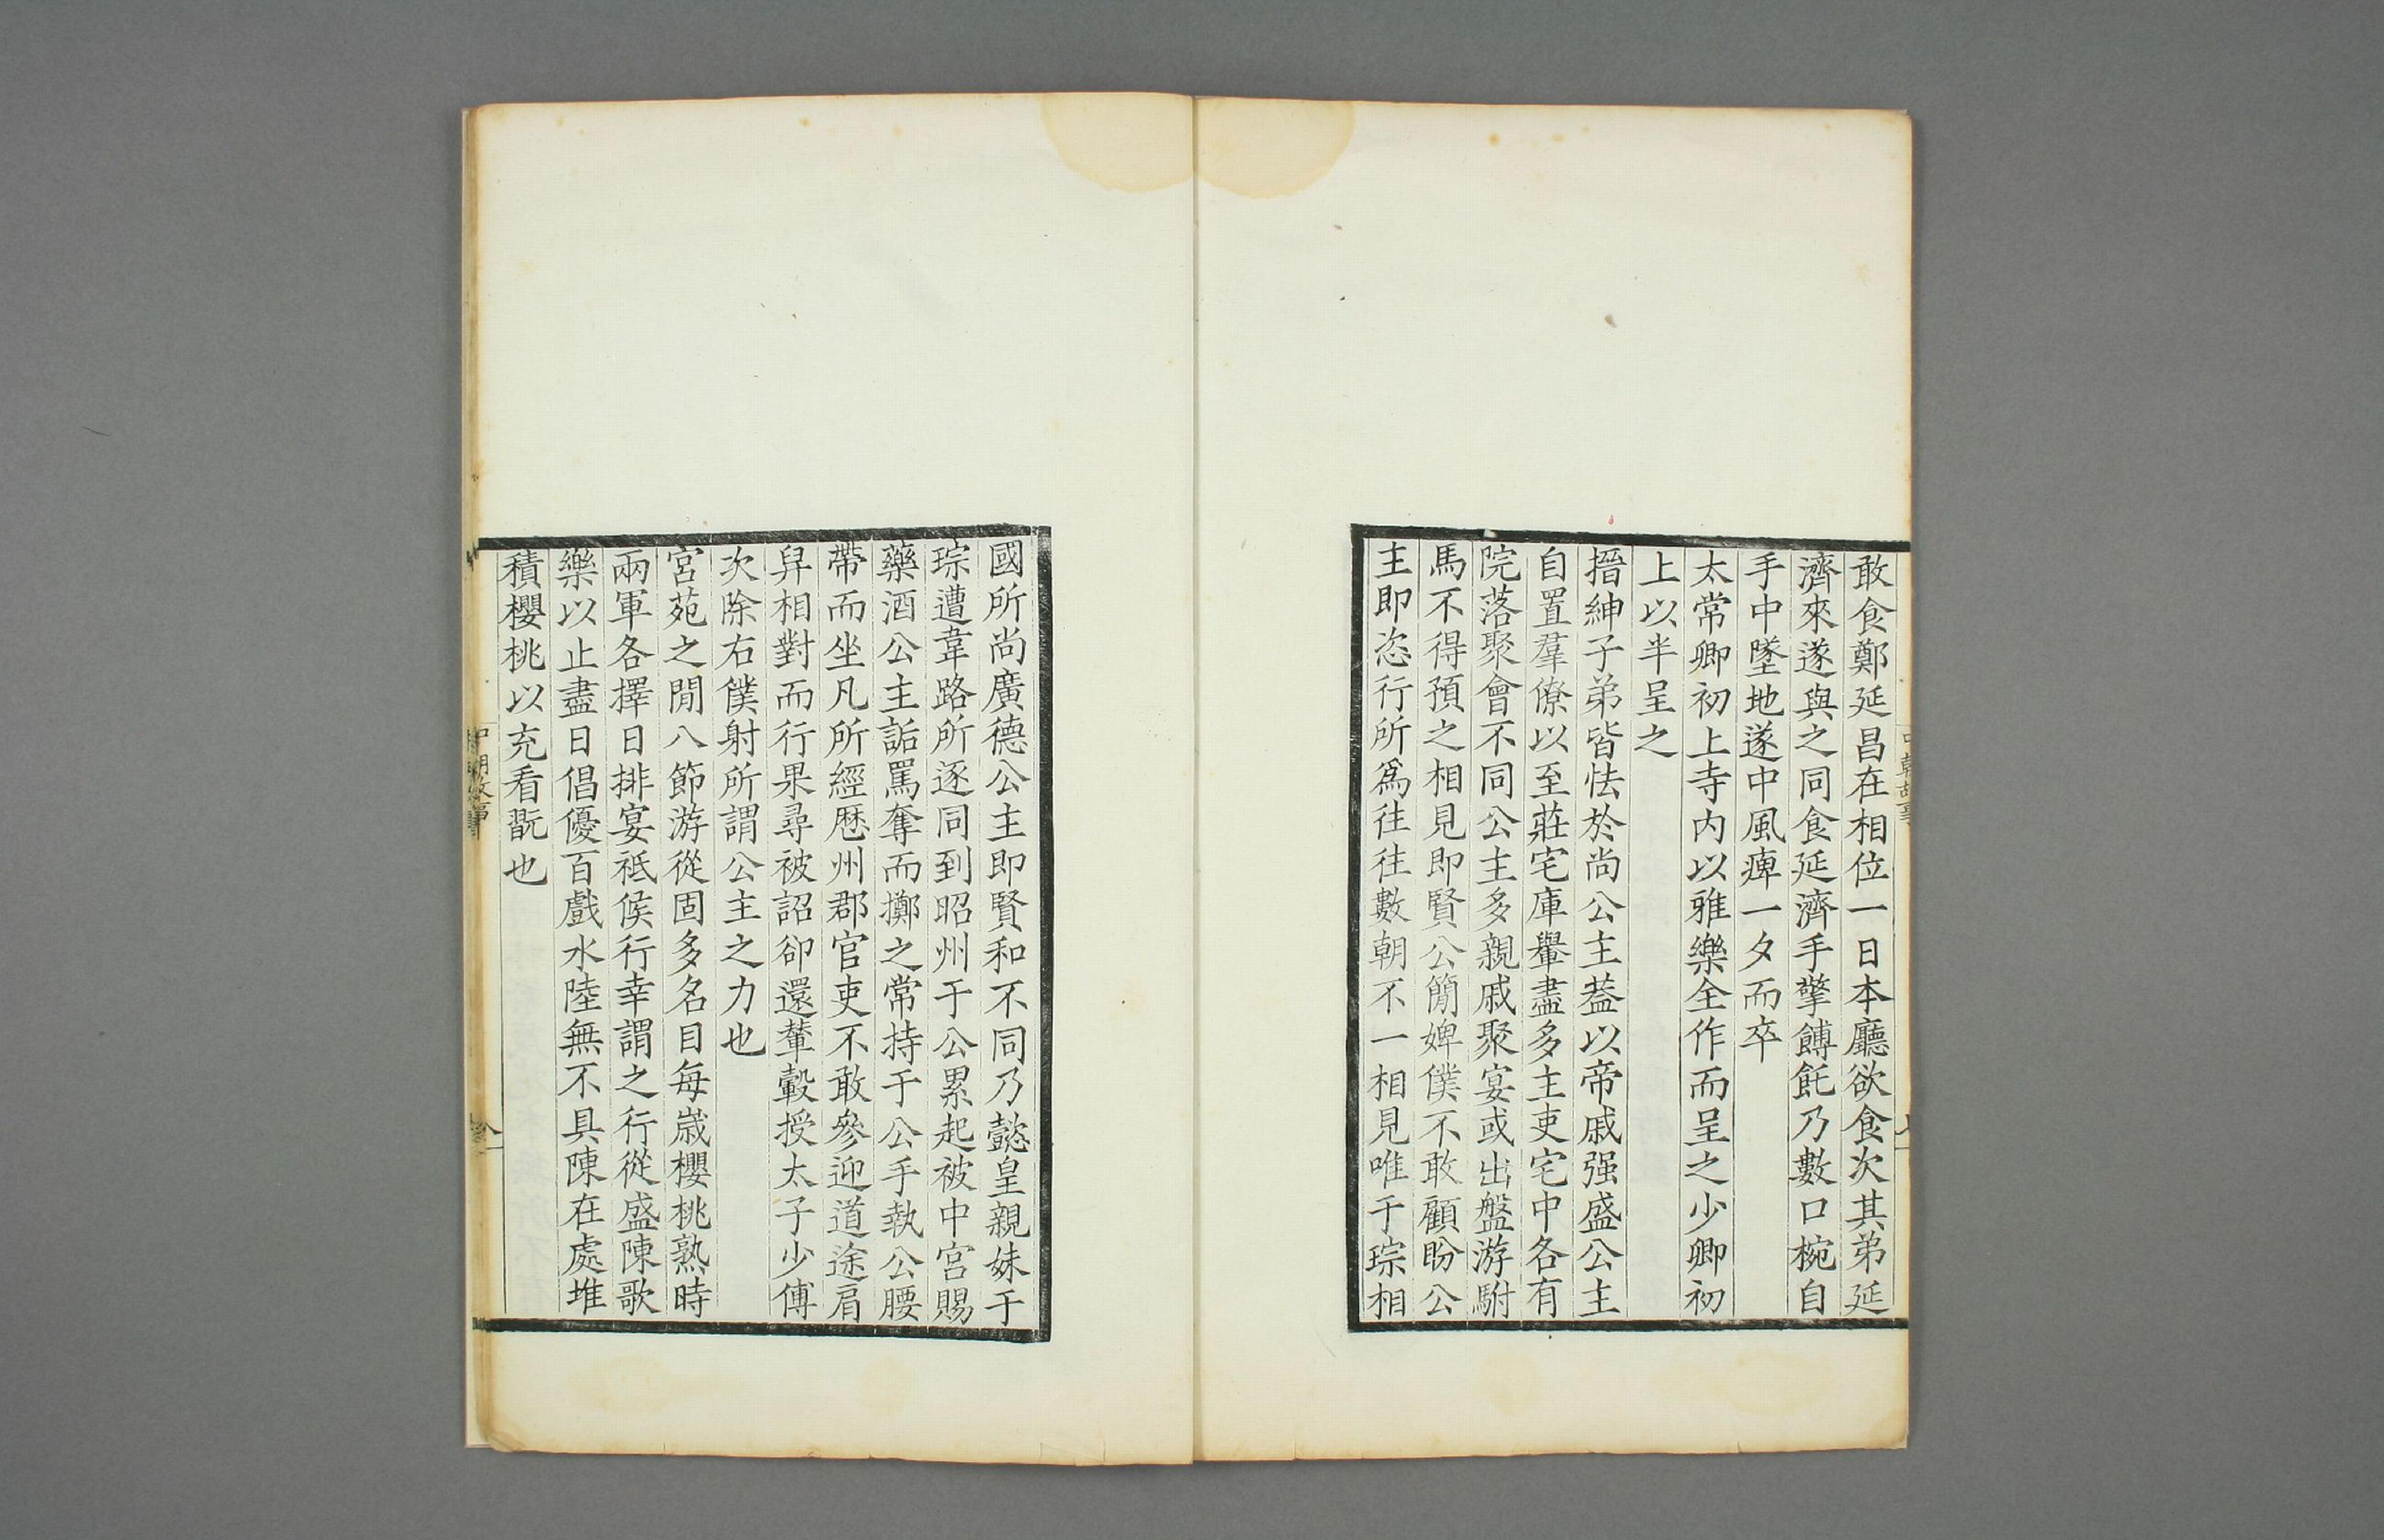 敢食鄭延昌在相位一日本廳欲食次其弟延
濟來遂與之同食延濟手擎餺飥乃數口椀自
手中墜地遂中風痺一夕而卒
太常卿初上寺内以雅樂全作而呈之少卿初
上以半呈之
搢紳子弟皆怯於尚公主葢以帝戚强盛公主
自置羣僚以至莊宅庫轝盡多主吏宅中各有
院落聚會不同公主多親戚聚宴或出盤游駙
馬不得預之相見即賢公簡婢僕不敢顧盼公
主即恣行所爲往往數朝不一相見唯于琮相
國所尚廣德公主即賢和不同乃懿皇親妹于
琮遭韋路所逐同到昭州于公累起被中宮賜
藥酒公主詬罵奪而擲之常持于公手執公腰
帶而坐凡所經歷州郡官吏不敢參迎道途肩
舁相對而行果尋被詔卻還輦轂授太子少傅
次除右僕射所謂公主之力也
宮苑之間八節游從固多名目每歲櫻桃熟時
兩軍各擇日排宴祗候行幸謂之行從盛陳歌
樂以止盡日倡優百戲水陸無不具陳在處堆
積櫻桃以充看翫也
中朝故事
八